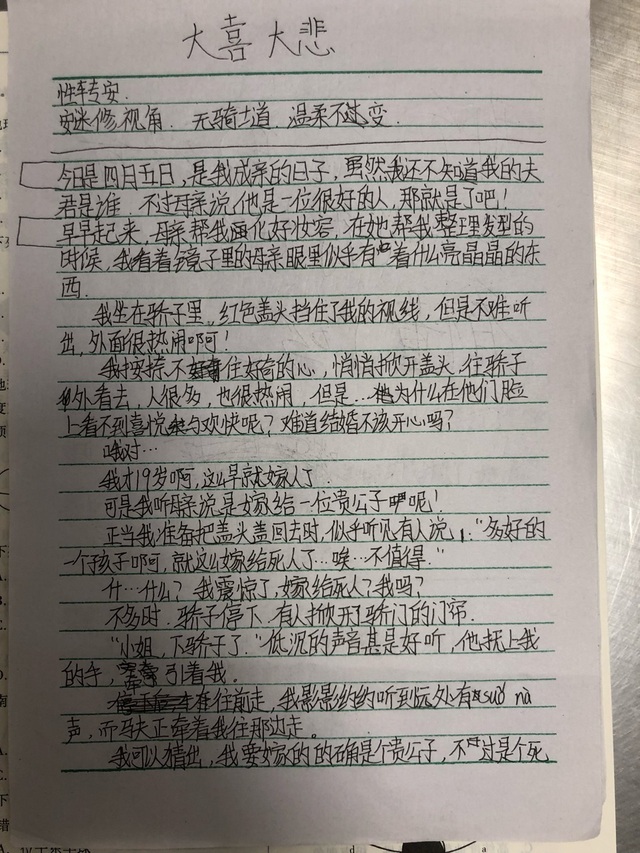 大喜大悲
性转安.
安迷修视角. 无骑士道. 温柔不变.
今日是四月五日,是我成亲的日子,虽然我还不知道我的夫
君是谁. 不过母亲说,他是一位很好的人,那就是了吧!
早早起来,母亲帮我画化好妆容,在她帮我整理发型的
时候,我看着镜子里的母亲眼里似乎有着什么亮晶晶的东
西.
我坐在骄子里,红色盖头挡住了我的视线,但是不难听
出,外面很热闹啊!
我按捺不住好奇的心,悄悄掀开盖头,往骄子
外看去,人很多,也很热闹,但是…为什么在他们脸
上看不到喜悦与欢快呢?难道结婚不该开心吗?
哦对…
我才19岁啊,这么早就嫁人了.
可是我听母亲说是嫁给一位贵公子呢!
正当我准备把盖头盖回去时,似乎听见有人说,“多好的
一个孩子啊,就这么嫁给死人了…唉…不值得.”
什…什么?我震惊了,嫁给死人?我吗?
不多时.骄子停下.有人掀开了骄门的门帘.
“小姐,下骄子了.”低沉的声音甚是好听,他抚上我
的手,牵引着我.
在往前走,我影影约约听到远处有suǒ nà
声,而马夫正牵着我往那边走。
我可以猜出,我要嫁的的确是个贵公子,不过是个死